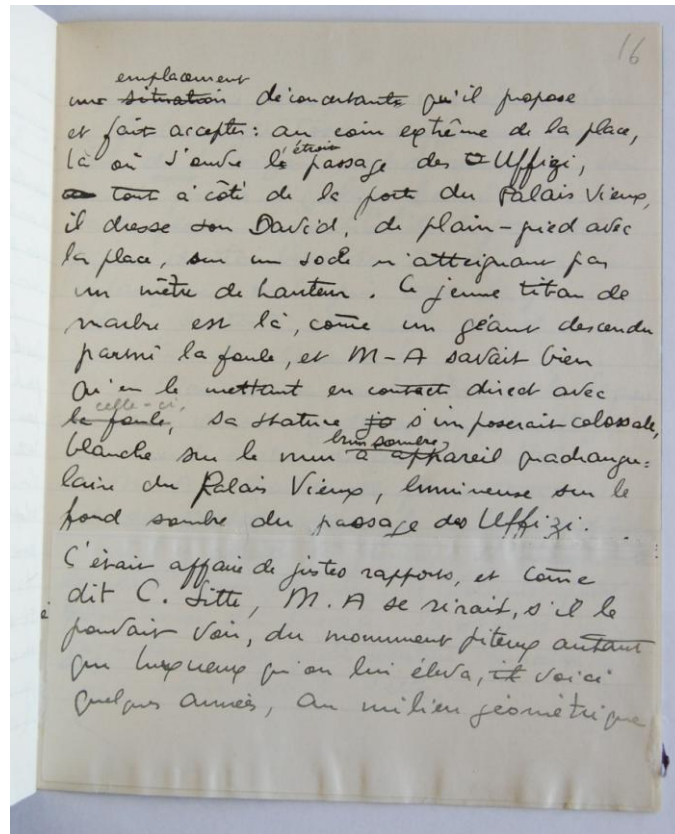 16
emplacement
une situation déconcertante qu'il propose
et fait accepter : au coin extrême de la place,
là où s'ouvre l'étroit passage des Uffizi,
tout à côté de la porte du Palais Vieux,
il dresse son David, de plain-pied avec
la place, sur un socle n'atteignant pas
un mètre de hauteur. Ce jeune titan de
marbre est là, come un géant descendu
parmi la foule, et M-A savait bien
qu'en le mettant en contact direct avec
celle-ci,
la foule, sa stature s'imposerait colossale,
brun sombre
blanche sur le mur à appareil quadrangu=
laire du Palais Vieux, lumineuse sur le
fond sombre du passage des Uffizi.
C'était affaire de justes rapports, et come
dit C. Sitte, M.A se rirait, s'il le
pouvait voir, du monument piteux autant
que luxueux qu'on lui éleva, il voici
quelques années, au milieu géométrique